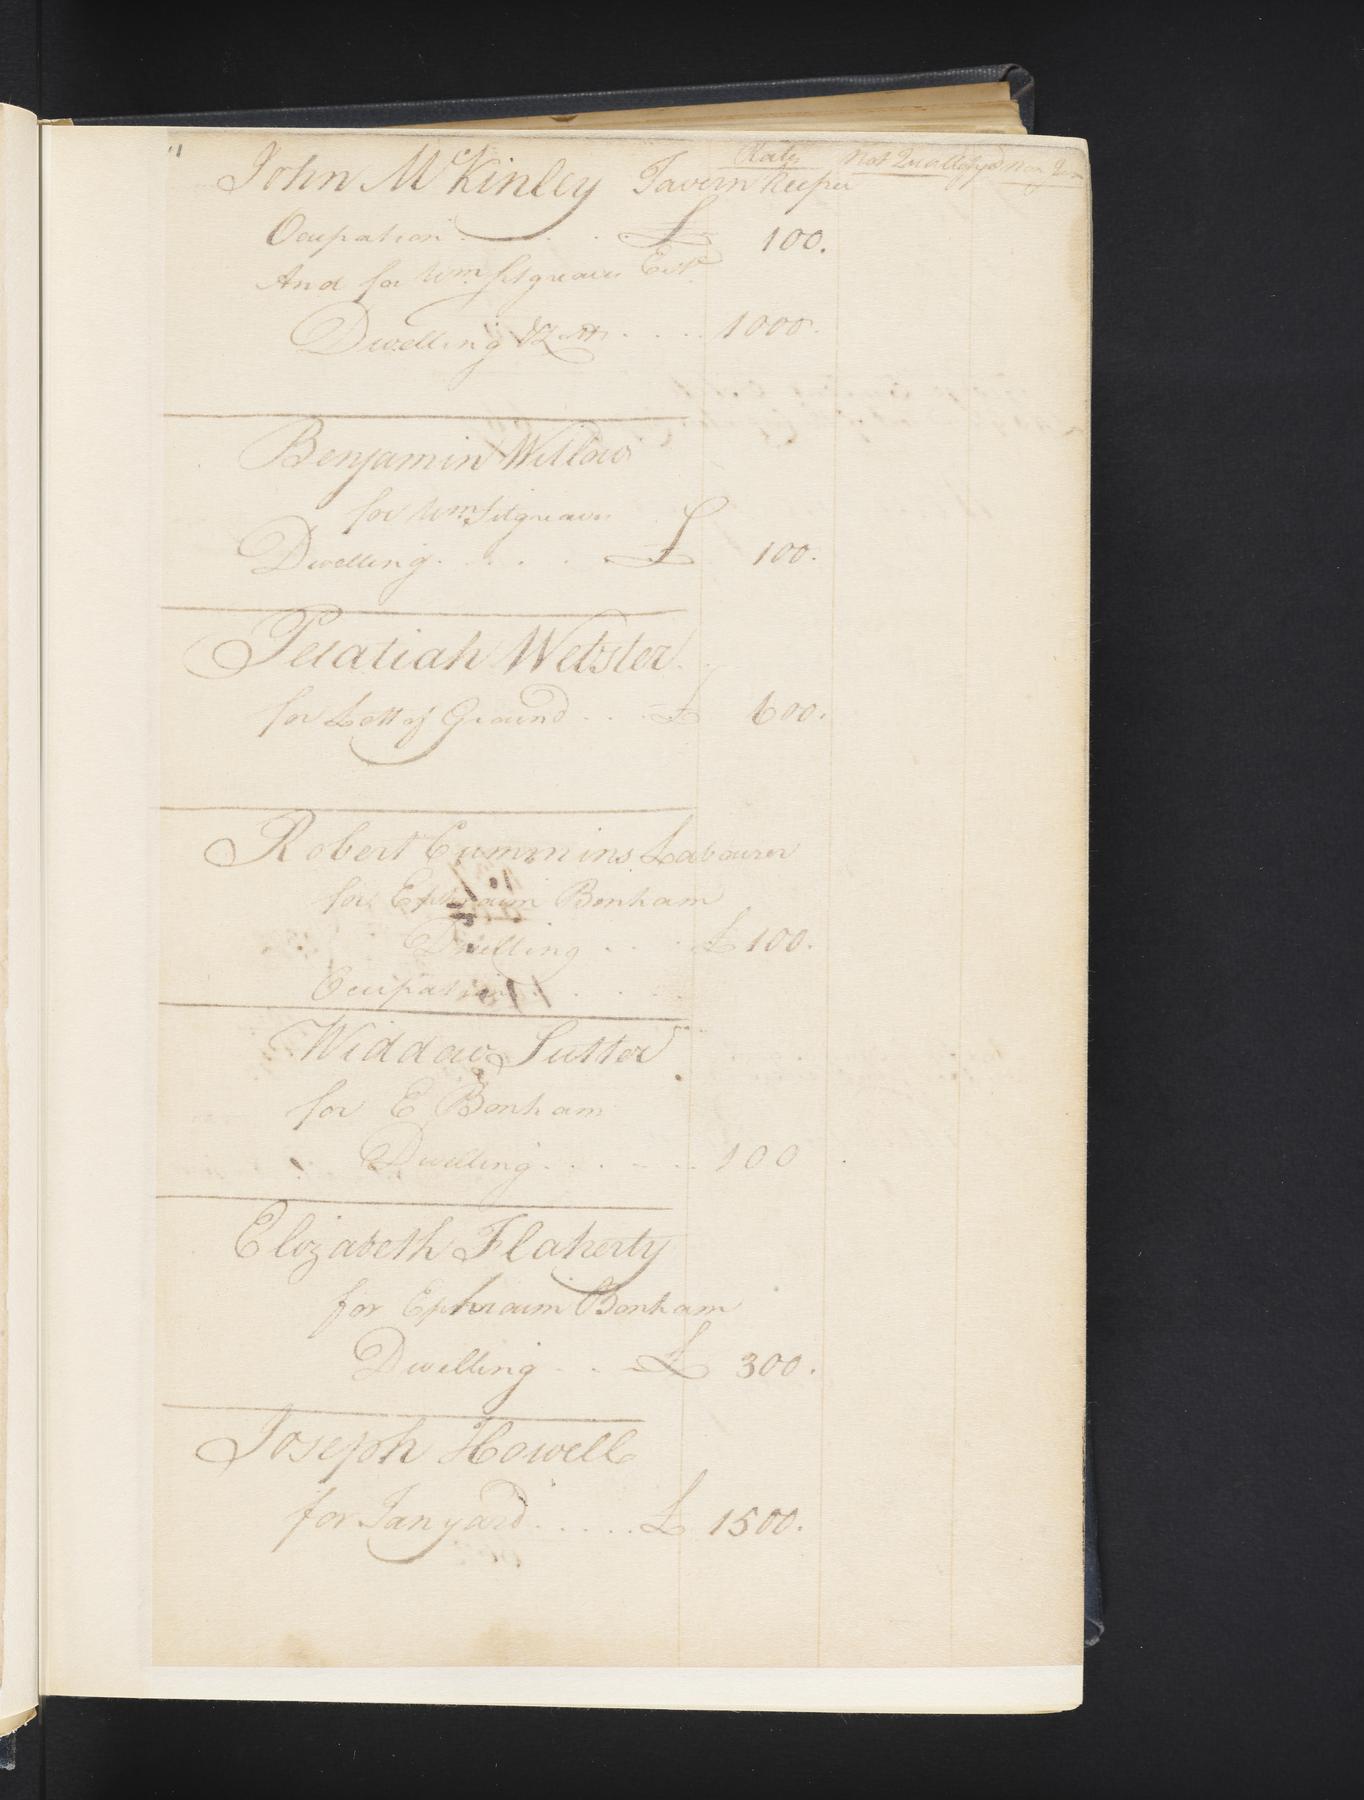 Rates Not Quallefyd Non Ju
John McKinley Tavern Keeper
Ocupation . . . £ 100.
And for Wm Sitgreaves Est
Dwelling & Lott . . . . 1000.
Benjamin Willow
for Wm Sitgreaves
Dwelling . . . . £ 100.
Pelatiah Webster
for Lott of Ground . . . £ 600.
Robert Cummins Labourer
for Ephraim Bonham
Dwelling . . . £ 100.
Ocupation . . . .
Widdow Sutter
for E Bonham
Dwelling . . . . . . 100
Elizabeth Flaherty
for Ephraim Bonham
Dwelling . . . £ 300.
Joseph Howell
for Tanyard . . . . . £ 1500.